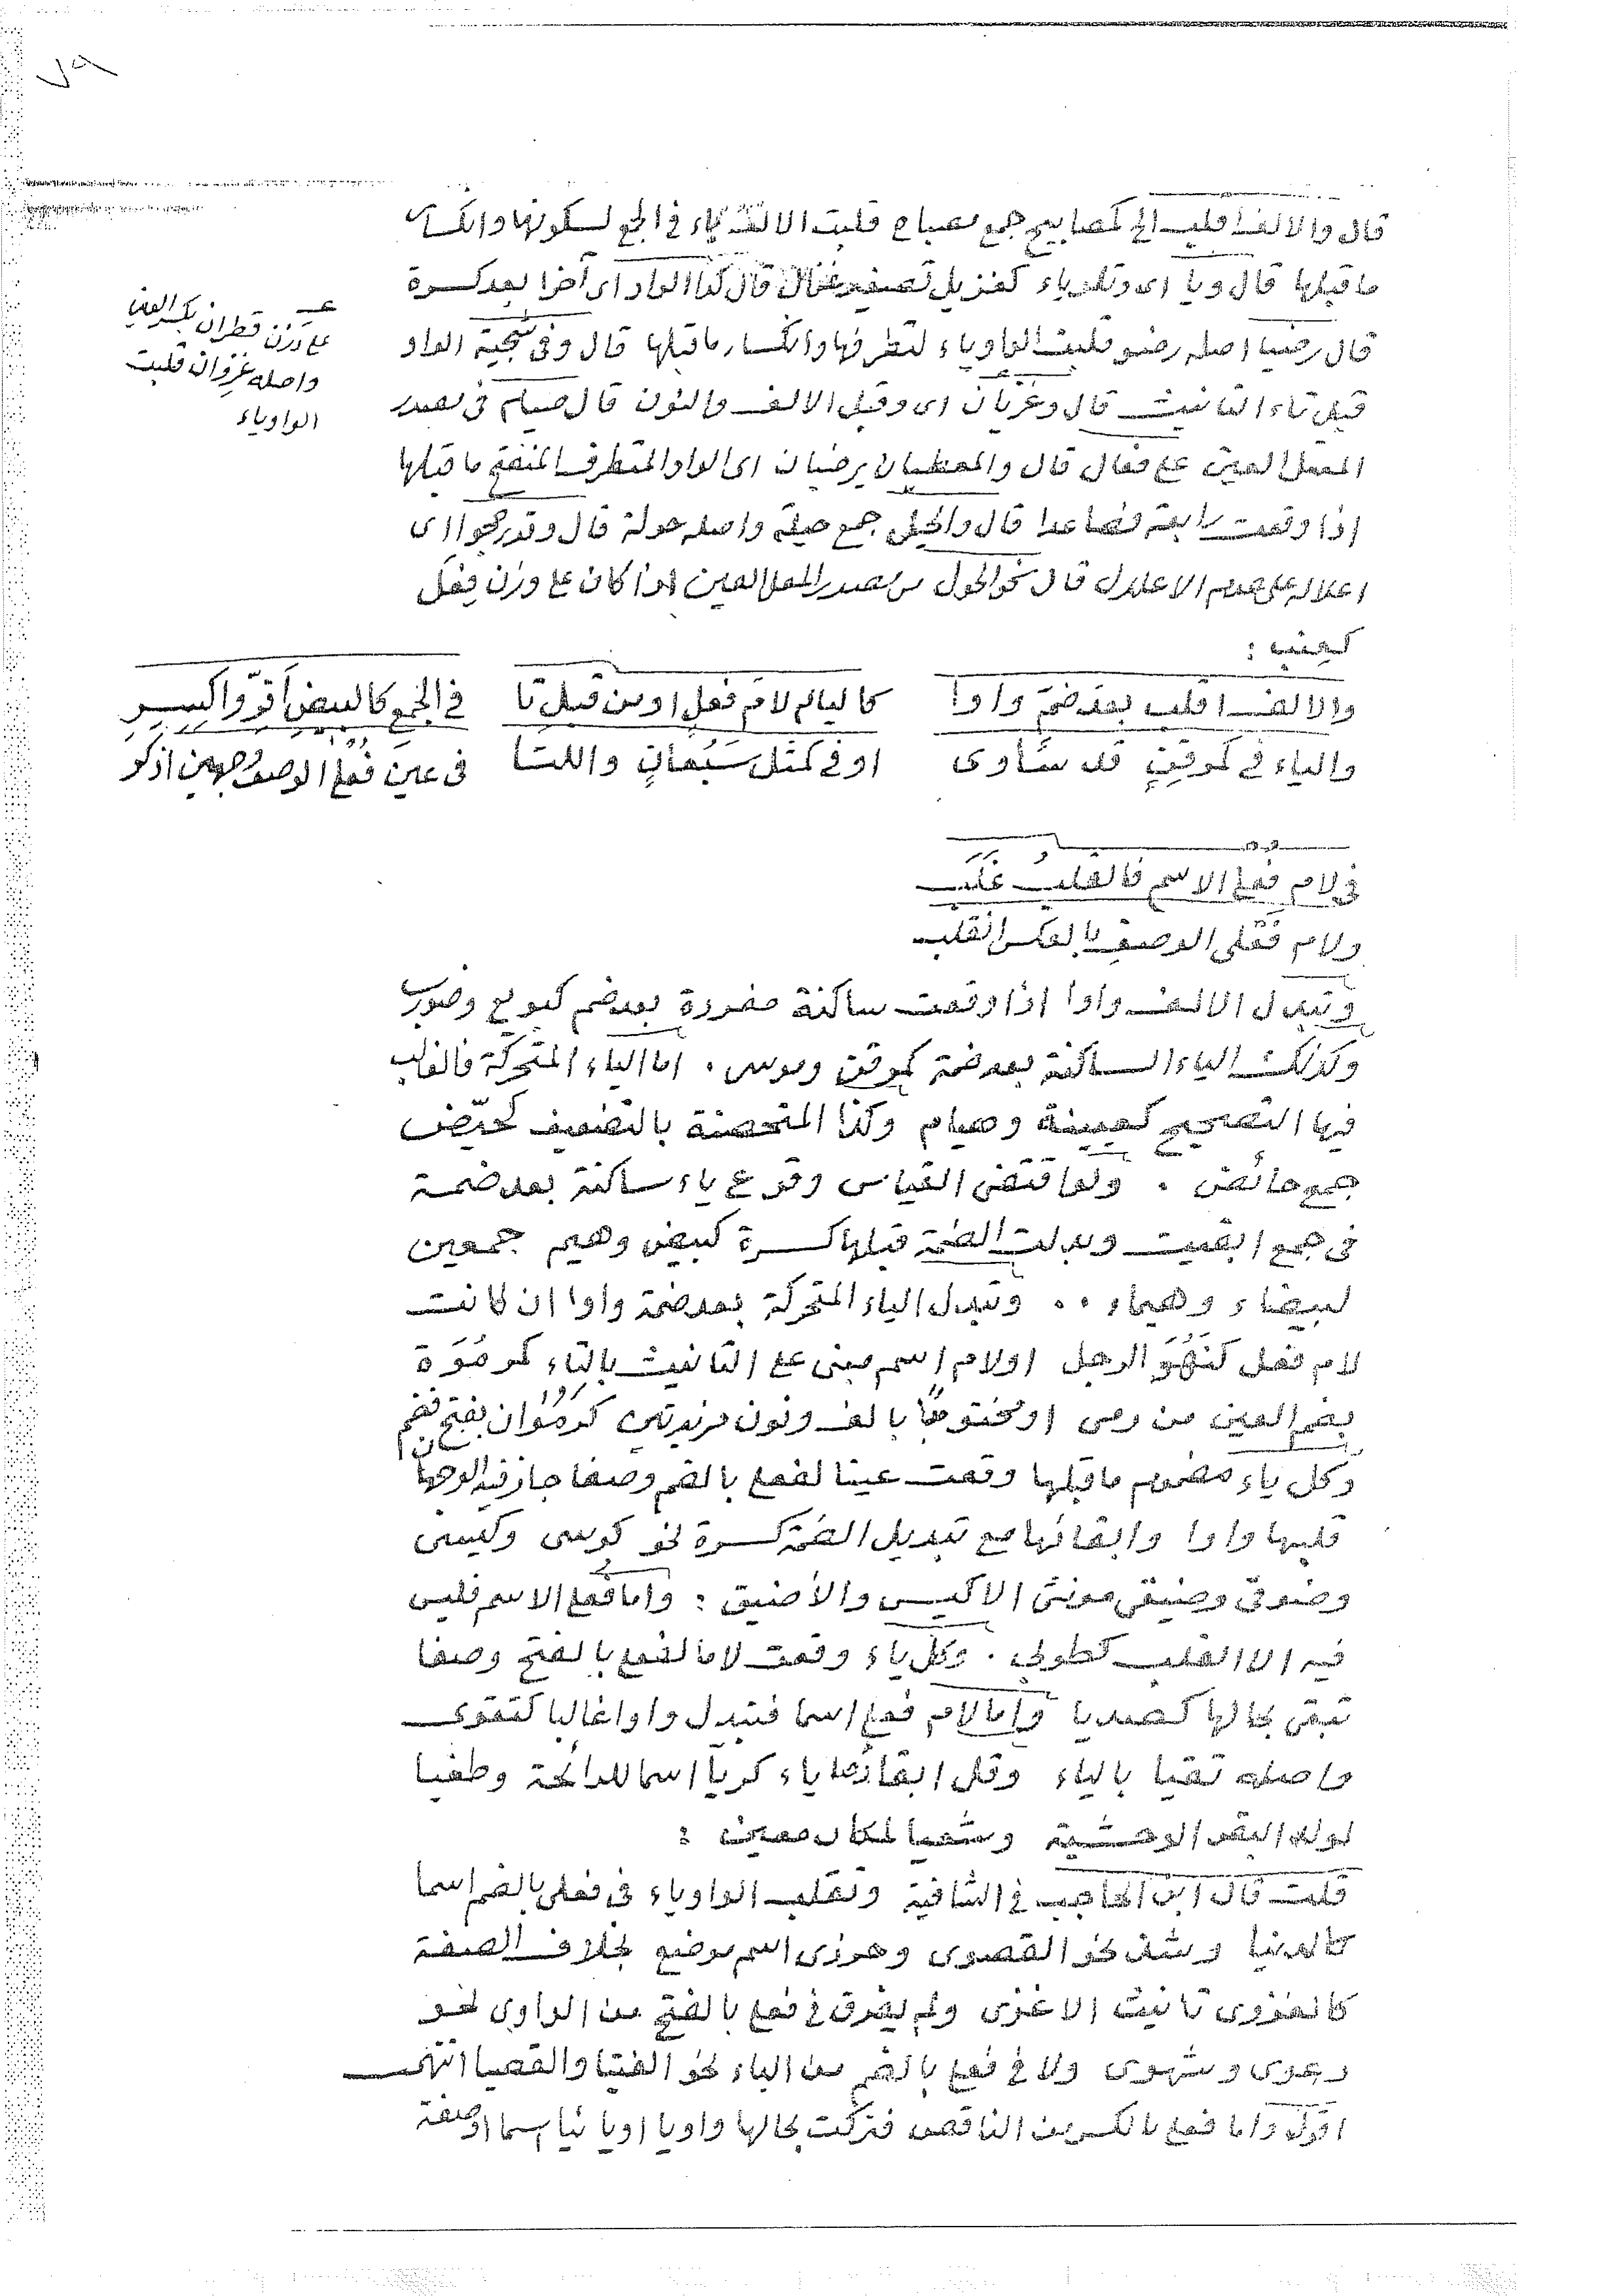 ٧٩
قال والالف اقلب الخ كمصابيح جمع مصباح قلبت الالف ياء فى الجمع لسكونها وانكسار
ما قبلها قال ويا اى وتلو ياء كغزيل تصغير غزال قال كذا الواو اى آخرا بعد كسرة
قال رضيا اصله رضو قلبت الواو ياء لتطرفها وانكسار ما قبلها قال وفى شجية الواو
قبل تاء التانيث قال وغزيان اى وقبل الالف والنون قال صيام فى مصدر
المعتل العين على فعال قال والمعطيان يرضيان اى الواو المتطرف المنفتح ما قبلها
اذا وقعت رابعة فصاعدا قال والحيل جمع حيلة واصله حولة قال وقد رجحوا اى
اعلاله على عدم الاعلال قال نحو الحول من مصدر المعل العين اذا كان على وزن فعل
عـ
على وزن قطران بكسر العين
واصله غزوان قلبت
الواو ياء
والالف اقلب بعد ضم واوا كاليا م لام فعل او من قبل تا فى الجمع كالبيض أقرّ واكسر
والياء فى كموقن قد ساوى او فى كمثل سبعان واللتا فى عين فعلى الوصف وجهين اذكر
فى لام فعلى الاسم فالقلب غلب
ولام فعلى الوصف بالعكس انقلب
وتبدل الالف واوا اذا وقعت ساكنة مفردة بعد ضم كبويع وضورب
وكذلك الياء الساكنة بعد ضمة كموقن وموسر . اما الياء المتحركة فالغالب
فيها التصحيح كعيينة وهيام وكذا المتحصنة بالتضعيف كحيّض
جمع حائض . ولو اقتضى القياس وقوع ياء ساكنة بعد ضمة
فى جمع ابقيت وبدلت الضمة قبلها كسرة كبيض وهيم جمعين
لبيضاء وهيماء .. وتبدل الياء المتحركة بعد ضمة واوا ان كانت
لام فعل كنَهُوَ الرجل او لام اسم مبنى على التانيث بالتاء كمرمُوَة
بضم العين من رمى او مختوما بالف ونون مزيدتين كرَمُوان بفتح فضم
وكل ياء مضموم ما قبلها وقعت عينا لفعلى بالضم وصفا جاز فيه الوجهان
قلبها واوا وابقائها مع تبديل الضمة كسرة نحو كوسى وكيسى
وضوقى وضيقى مونثى الاكيس والأضيق : واما فعلى الاسم فليس
فيه الا القلب كطوبى . وكل ياء وقعت لاما لفعلى بالفتح وصفا
تبقى بحالها كصديا واما لام فعلى اسما فتبدل واوا غالبا كتقوى
واصله تقيا بالياء وقل ابقائها ياء كريّا اسما للرائحة وطغيا
لولد البقر الوحشية وسعيا لمكان معين :
قلت قال ابن الحاجب فى الشافية وتقلب الواو ياء فى فعلى بالضم اسما
كالدنيا وشذ نحو القصوى وحزوى اسم موضع بخلاف الصفة
كالغزوى تانيث الاغزى ولم يفرق فى فعلى بالفتح من الواوى نحو
دعوى وشهوى ولا فى فعلى بالضم من الياء نحو الفتيا والقصيا انتهى
اقول واما فعلى بالكسر من الناقص فتركت بحالها واويا او يائيا اسما او صفة